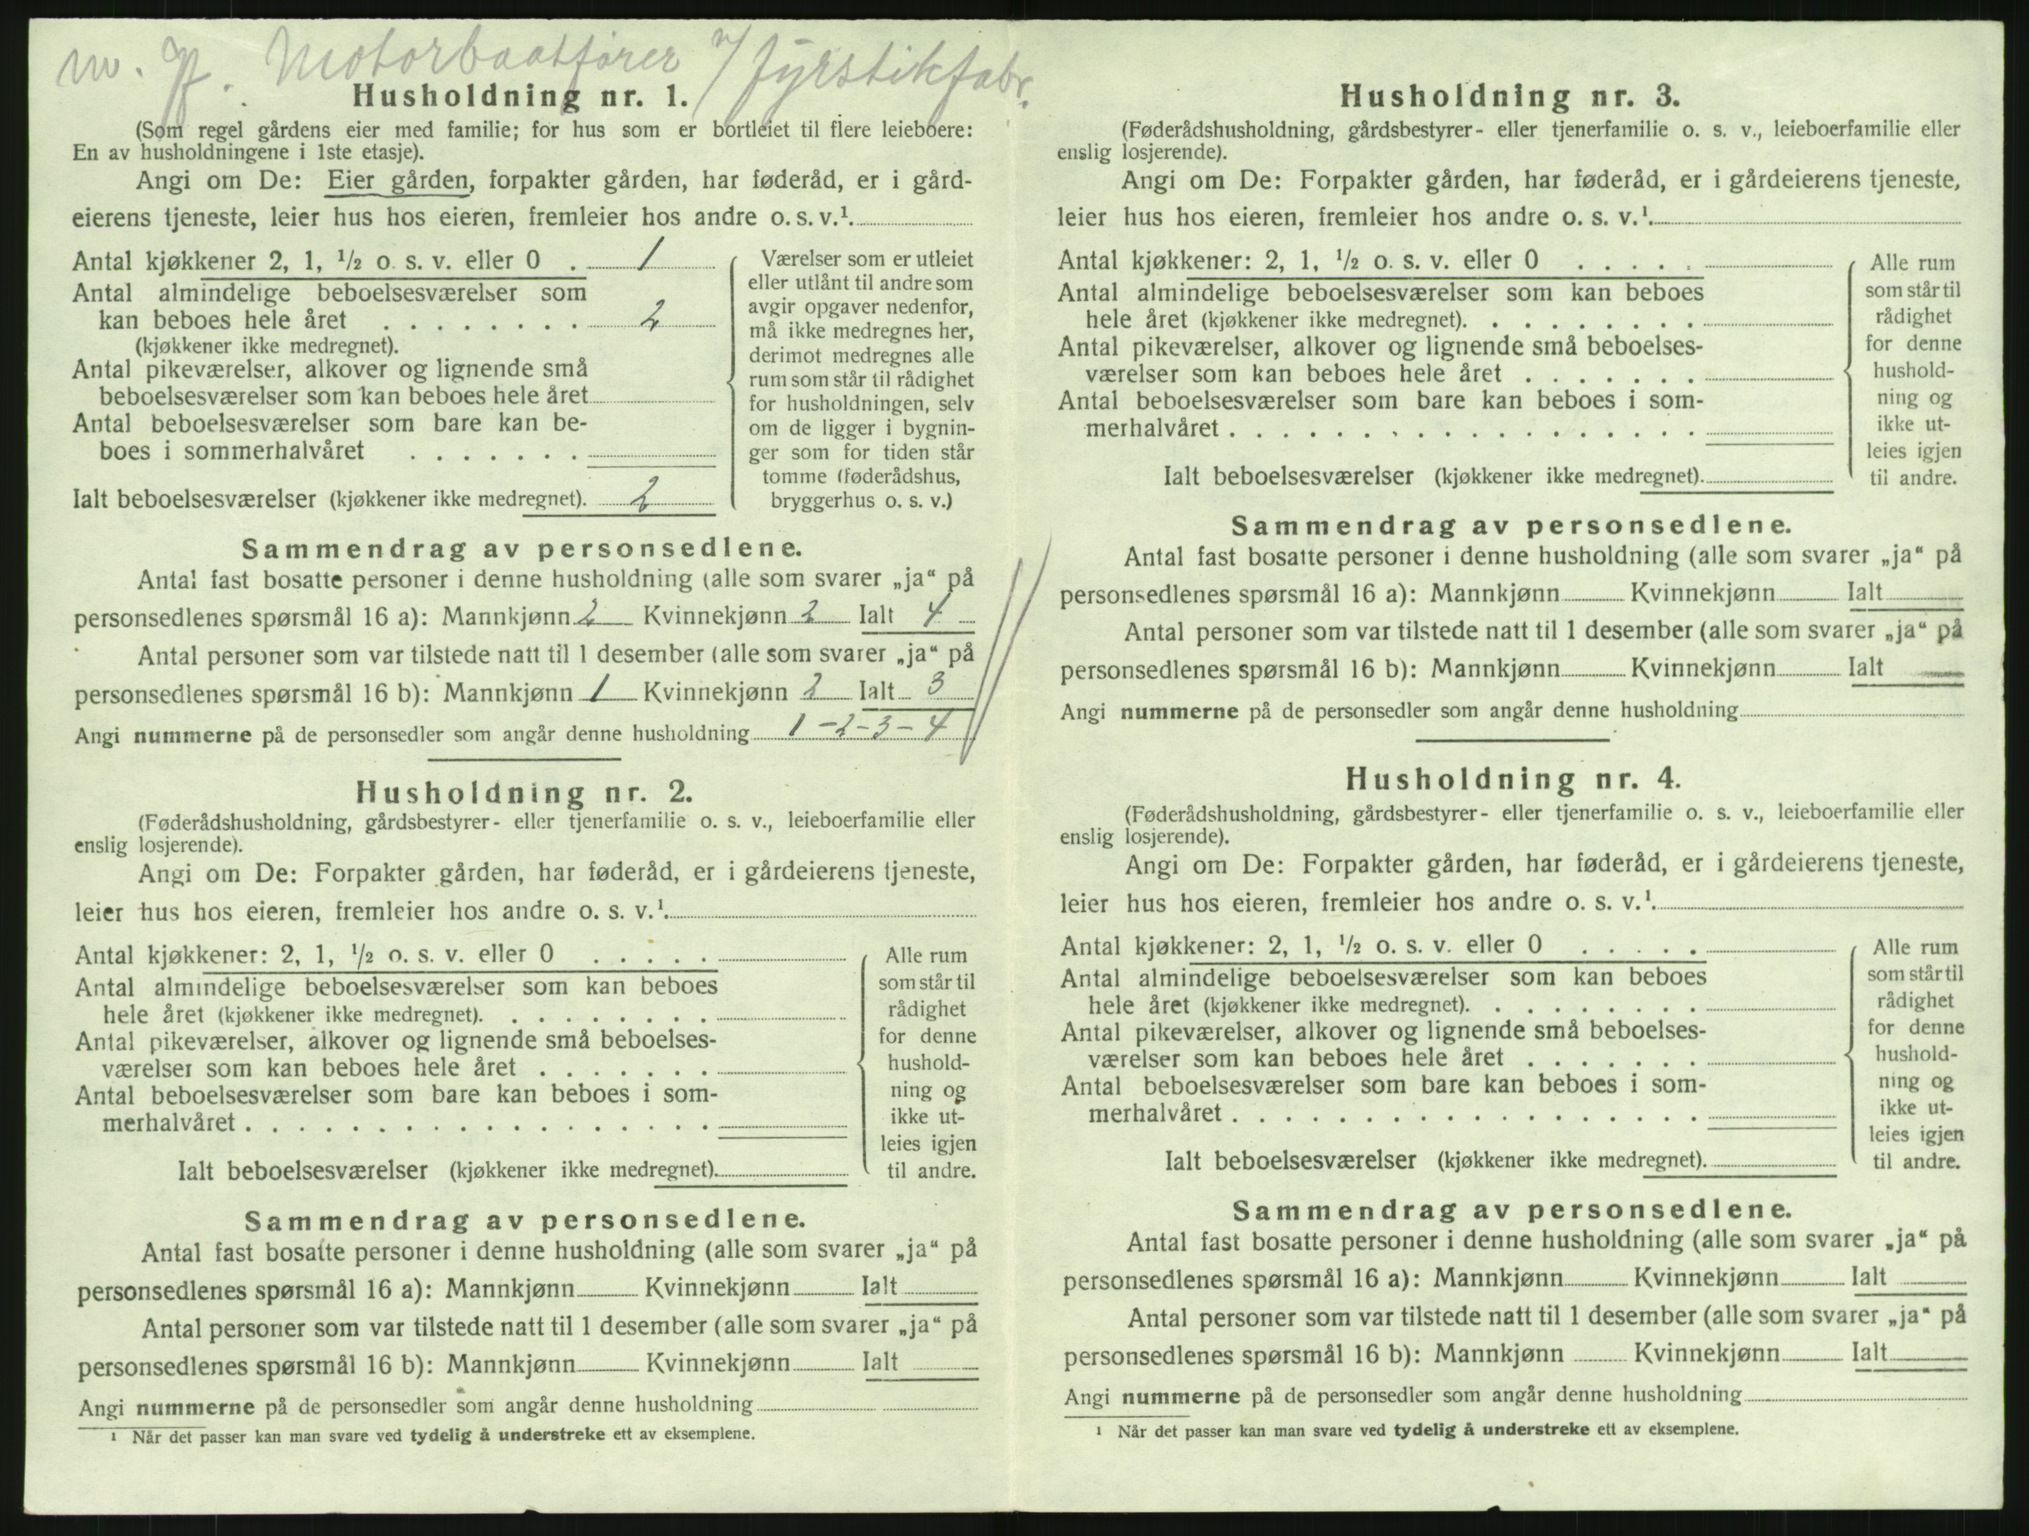 m. pf. Motorbaatfører v/ fyrstikfabr.
Husholdning nr. 1.
(Som regel gårdens eier med familie; for hus som er bortleiet til flere leieboere:
En av husholdningene i 1ste etasje).
Angi om De: Eier gården, forpakter gården, har føderåd, er i gård-
eierens tjeneste, leier hus hos eieren, fremleier hos andre o. s. v.¹
Antal kjøkkener 2, 1, ½ o. s. v. eller 0 . 1
Antal almindelige beboelsesværelser som
kan beboes hele året . . . . . . . . 2
(kjøkkener ikke medregnet).
Antal pikeværelser, alkover og lignende små
beboelsesværelser som kan beboes hele året
Antal beboelsesværelser som bare kan be-
boes i sommerhalvåret . . . . . . .
Ialt beboelsesværelser (kjøkkener ikke medregnet). 2
Værelser som er utleiet
eller utlånt til andre som
avgir opgaver nedenfor,
må ikke medregnes her,
derimot medregnes alle
rum som står til rådighet
for husholdningen, selv
om de ligger i bygnin-
ger som for tiden står
tomme (føderådshus,
bryggerhus o. s. v.)
Sammendrag av personsedlene.
Antal fast bosatte personer i denne husholdning (alle som svarer „ja“ på
personsedlenes spørsmål 16 a): Mannkjønn 2 Kvinnekjønn 2 Ialt 4
Antal personer som var tilstede natt til 1 desember (alle som svarer „ja“ på
personsedlenes spørsmål 16 b): Mannkjønn 1 Kvinnekjønn 2 Ialt 3
Angi nummerne på de personsedler som angår denne husholdning 1-2-3-4
Husholdning nr. 2.
(Føderådshusholdning, gårdsbestyrer- eller tjenerfamilie o. s. v., leieboerfamilie eller
enslig losjerende).
Angi om De: Forpakter gården, har føderåd, er i gårdeierens tjeneste,
leier hus hos eieren, fremleier hos andre o. s. v.¹
Antal kjøkkener: 2, 1, ½ o. s. v. eller 0 . . . . .
Antal almindelige beboelsesværelser som kan beboes
hele året (kjøkkener ikke medregnet). . . . . . . . .
Antal pikeværelser, alkover og lignende små beboelses-
værelser som kan beboes hele året . . . . . . .
Antal beboelsesværelser som bare kan beboes i som-
merhalvåret . . . . . . . . . . . . . . . . . .
Ialt beboelsesværelser (kjøkkener ikke medregnet).
Alle rum
som står til
rådighet
for denne
hushold-
ning og
ikke ut-
leies igjen
til andre.
Sammendrag av personsedlene.
Antal fast bosatte personer i denne husholdning (alle som svarer „ja“ på
personsedlenes spørsmål 16 a): Mannkjønn Kvinnekjønn Ialt
Antal personer som var tilstede natt til 1 desember (alle som svarer „ja“ på
personsedlenes spørsmål 16 b): Mannkjønn Kvinnekjønn Ialt
Angi nummerne på de personsedler som angår denne husholdning
¹ Når det passer kan man svare ved tydelig å understreke ett av eksemplene.
Husholdning nr. 3.
(Føderådshusholdning, gårdsbestyrer- eller tjenerfamilie o. s. v., leieboerfamilie eller
enslig losjerende).
Angi om De: Forpakter gården, har føderåd, er i gårdeierens tjeneste,
leier hus hos eieren, fremleier hos andre o. s. v.¹
Antal kjøkkener: 2, 1, ½ o. s. v. eller 0 . . . . .
Antal almindelige beboelsesværelser som kan beboes
hele året (kjøkkener ikke medregnet). . . . . . . . .
Antal pikeværelser, alkover og lignende små beboelses-
værelser som kan beboes hele året . . . . . . .
Antal beboelsesværelser som bare kan beboes i som-
merhalvåret . . . . . . . . . . . . . . . . . .
Ialt beboelsesværelser (kjøkkener ikke medregnet).
Alle rum
som står til
rådighet
for denne
hushold-
ning og
ikke ut-
leies igjen
til andre.
Sammendrag av personsedlene.
Antal fast bosatte personer i denne husholdning (alle som svarer „ja“ på
personsedlenes spørsmål 16 a): Mannkjønn Kvinnekjønn Ialt
Antal personer som var tilstede natt til 1 desember (alle som svarer „ja“ på
personsedlenes spørsmål 16 b): Mannkjønn Kvinnekjønn Ialt
Angi nummerne på de personsedler som angår denne husholdning
Husholdning nr. 4.
(Føderådshusholdning, gårdsbestyrer- eller tjenerfamilie o. s. v., leieboerfamilie eller
enslig losjerende).
Angi om De: Forpakter gården, har føderåd, er i gårdeierens tjeneste,
leier hus hos eieren, fremleier hos andre o. s. v.¹
Antal kjøkkener: 2, 1, ½ o. s. v. eller 0 . . . . .
Antal almindelige beboelsesværelser som kan beboes
hele året (kjøkkener ikke medregnet). . . . . . . . .
Antal pikeværelser, alkover og lignende små beboelses-
værelser som kan beboes hele året . . . . . . .
Antal beboelsesværelser som bare kan beboes i som-
merhalvåret . . . . . . . . . . . . . . . . . .
Ialt beboelsesværelser (kjøkkener ikke medregnet).
Alle rum
som står til
rådighet
for denne
hushold-
ning og
ikke ut-
leies igjen
til andre.
Sammendrag av personsedlene.
Antal fast bosatte personer i denne husholdning (alle som svarer „ja“ på
personsedlenes spørsmål 16 a): Mannkjønn Kvinnekjønn Ialt
Antal personer som var tilstede natt til 1 desember (alle som svarer „ja“ på
personsedlenes spørsmål 16 b): Mannkjønn Kvinnekjønn Ialt
Angi nummerne på de personsedler som angår denne husholdning
¹ Når det passer kan man svare ved tydelig å understreke ett av eksemplene.